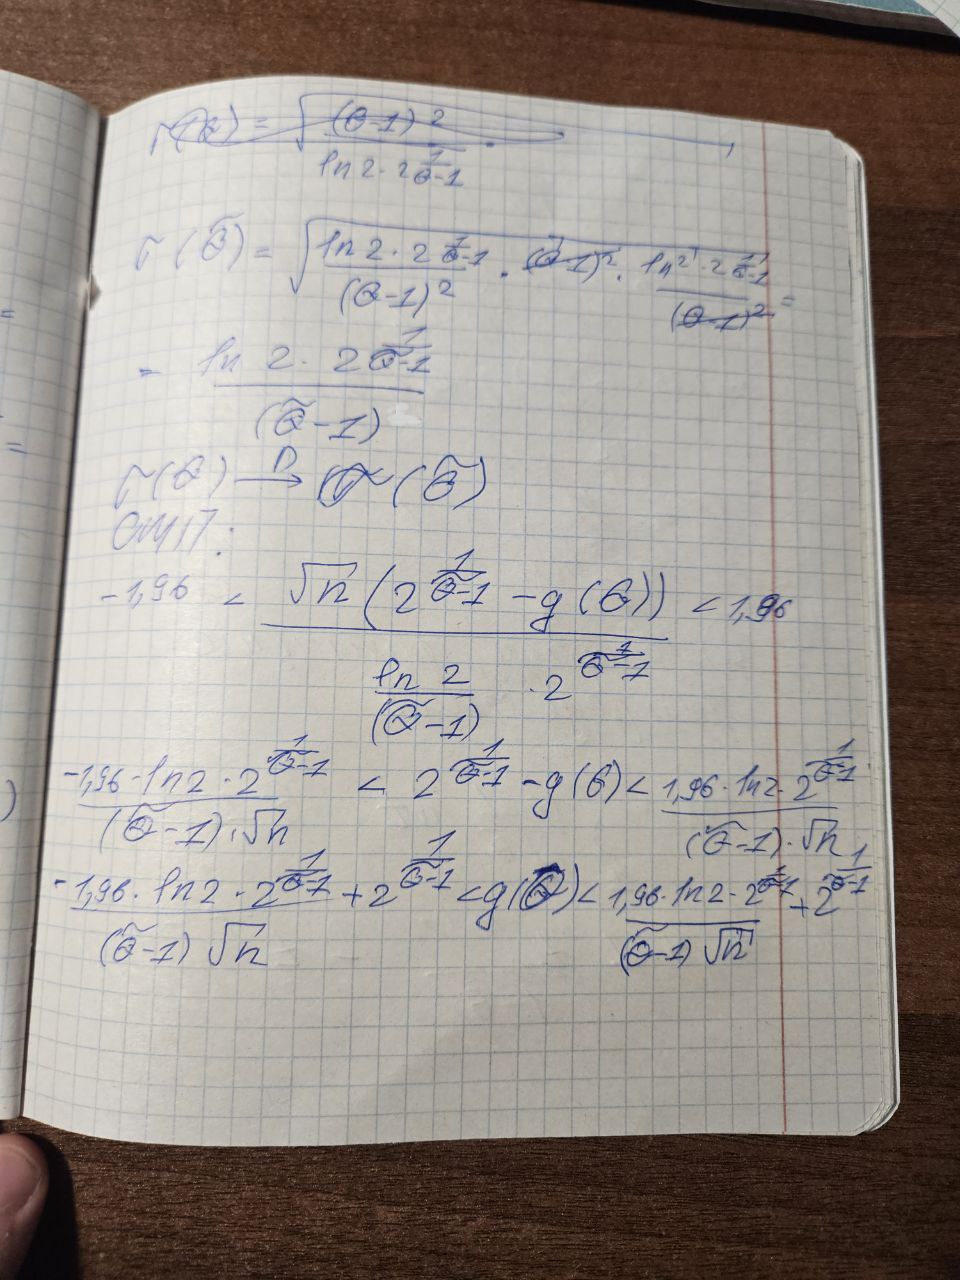 σ(θ) = √((θ-1)² / (ln2 · 2^(1/(θ-1)))) ·
σ(θ̃) = √((ln2 · 2^(1/(θ̃-1))) / (θ-1)² · (θ̃-1)² · (ln2 · 2^(1/(θ̃-1))) / (θ-1)²) =
= (ln 2 · 2^(1/(θ̃-1))) / (θ̃-1)
σ(θ) →^P σ(θ̃)
-1,96 < √n (2^(1/(θ̃-1)) - g(θ)) / ((ln 2 / (θ̃-1)) · 2^(1/(θ̃-1))) < 1,96
(-1,96 · ln2 · 2^(1/(θ̃-1))) / ((θ̃-1)·√n) < 2^(1/(θ̃-1)) - g(θ) < (1,96 · ln2 · 2^(1/(θ̃-1))) / ((θ̃-1)·√n)
(-1,96 · ln2 · 2^(1/(θ̃-1))) / ((θ̃-1) √n) + 2^(1/(θ̃-1)) < g(θ) < (1,96 · ln2 · 2^(1/(θ̃-1))) / ((θ̃-1) √n) + 2^(1/(θ̃-1))
=
=
)